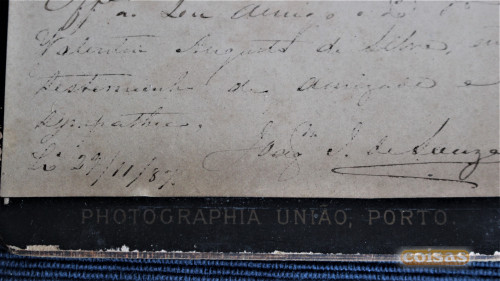 Off.ce ao seu amigo e
Valentim Augusto da Silva, em
testemunho de amizade e
sympathia.
Joaq.m J. de Souza
29/11/87.
PHOTOGRAPHIA UNIÃO, PORTO.
COISAS